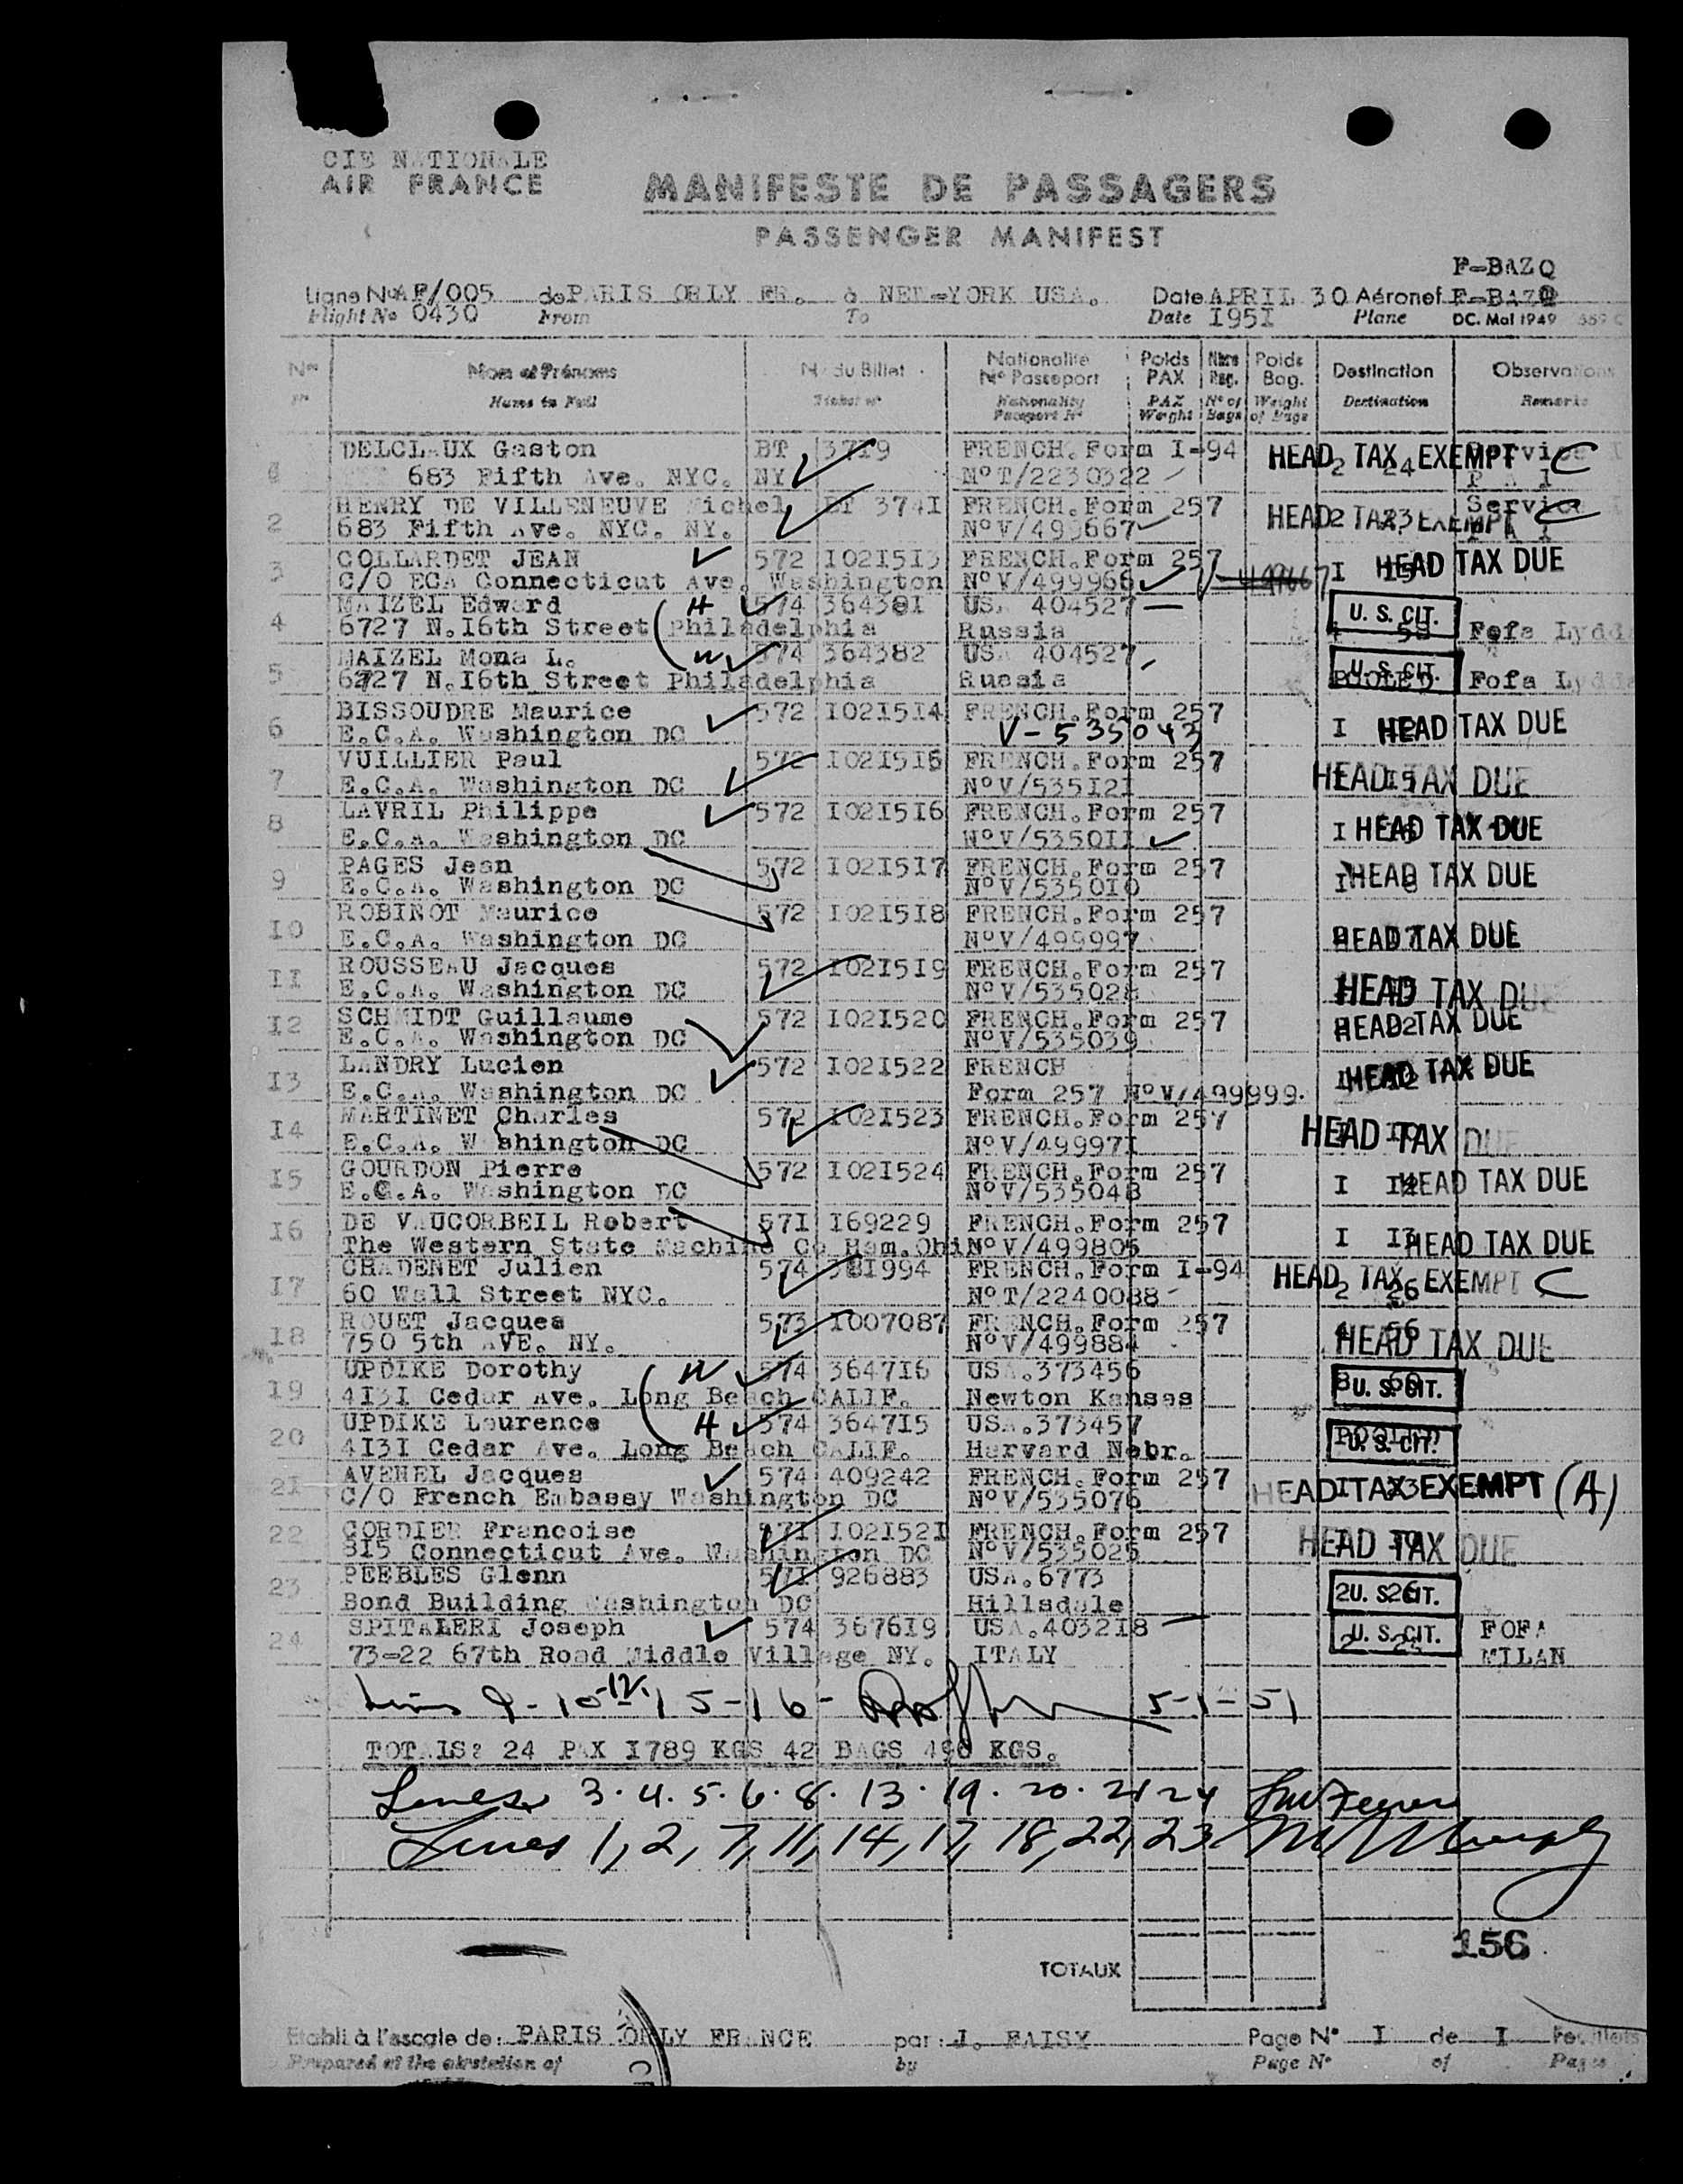 CIE NATIONALE
AIR FRANCE
MANIFESTE DE PASSAGERS
PASSENGER MANIFEST
F-BAZQ
Ligne No AF/005 de PARIS ORLY FR. à NEW-YORK USA. Date APRIL 30 Aéronef F-BAZQ
Flight No 0430 From To Date I95I Plane DC. Mai 1949
Nos Nom et Prénoms No du Billet Nationalité Poids Nbre Poids Destination Observations
No Passeport PAX Bag. Bag.
Names in Full Ticket no Nationality PAX No of Weight Destination Remarks
Passport No Weight Bags of Bags
DELCLAUX Gaston BT 37I9 FRENCH.Form I-94 HEAD TAX EXEMPT C Service
683 Fifth Ave. NYC. NY NoT/2230322 2 24 P A I
2 HENRY DE VILLENEUVE Michel BT 374I FRENCH.Form 257 Service
683 Fifth Ave. NYC. NY. NoV/499667 2 23 HEAD TAX EXEMPT C P A I
3 COLLARDET JEAN 572 I02I5I3 FRENCH.Form 257 HEAD TAX DUE
C/O ECA Connecticut Ave. Washington NoV/499966 V-499667 I I5
4 MAIZEL Edward H 574 36438I USA 404527 U. S. CIT.
6727 N.I6th Street Philadelphia Russia Fofa Lydda
5 MAIZEL Mona L. W 574 364382 USA 404527 U. S. CIT.
6727 N.I6th Street Philadelphia Russia POOLED Fofa Lydda
6 BISSOUDRE Maurice 572 I02I5I4 FRENCH.Form 257
E.C.A. Washington DC V-535043 I HEAD TAX DUE
7 VUILLIER Paul 572 I02I5I6 FRENCH.Form 257
E.C.A. Washington DC NoV/535I2I HEAD TAX DUE
8 LAVRIL Philippe 572 I02I5I6 FRENCH.Form 257
E.C.A. Washington DC NoV/5350II I HEAD TAX DUE
9 PAGES Jean 572 I02I5I7 FRENCH.Form 257
E.C.A. Washington DC NoV/5350I0 I HEAD TAX DUE
I0 ROBINOT Maurice 572 I02I5I8 FRENCH.Form 257
E.C.A. Washington DC NoV/499997 HEAD TAX DUE
II ROUSSEAU Jacques 572 I02I5I9 FRENCH.Form 257
E.C.A. Washington DC NoV/535028 HEAD TAX DUE
I2 SCHMIDT Guillaume 572 I02I520 FRENCH.Form 257 HEAD TAX DUE
E.C.A. Washington DC NoV/535039
I3 LANDRY Lucien 572 I02I522 FRENCH HEAD TAX DUE
E.C.A. Washington DC Form 257 NoV/499999.
I4 MARTINET Charles 572 I02I523 FRENCH.Form 257
E.C.A. Washington DC NoV/49997I HEAD TAX DUE
I5 GOURDON Pierre 572 I02I524 FRENCH.Form 257
E.C.A. Washington DC NoV/535048 I HEAD TAX DUE
I6 DE VAUCORBEIL Robert 57I I69229 FRENCH.Form 257
The Western State Machine Co Ham.Ohi NoV/499805 I I3 HEAD TAX DUE
I7 CHADENET Julien 574 38I994 FRENCH.Form I-94 HEAD TAX EXEMPT C
60 Wall Street NYC. NoT/2240088 2 26
I8 ROUET Jacques 573 I007087 FRENCH.Form 257
750 5th AVE. NY. NoV/499884 HEAD TAX DUE
I9 UPDIKE Dorothy W 574 3647I6 USA.373456
4I3I Cedar Ave. Long Beach CALIF. Newton Kansas U. S. CIT.
20 UPDIKE Laurence H 574 3647I5 USA.373457
4I3I Cedar Ave. Long Beach CALIF. Harvard Nebr. U. S. CIT.
2I AVENEL Jacques 574 409242 FRENCH.Form 257
C/O French Embassy Washington DC NoV/535076 HEAD TAX EXEMPT (A)
22 CORDIER Francoise 57I I02I52I FRENCH.Form 257 HEAD TAX DUE
8I5 Connecticut Ave. Washington DC NoV/535025
23 PEEBLES Glenn 57I 926883 USA.6773
Bond Building Washington DC Hillsdale 2 26 U. S. CIT.
24 SPITALERI Joseph 574 3676I9 USA.4032I8 U. S. CIT. FOFA
73-22 67th Road Middle Village NY. ITALY MILAN
Lines 9-10-12-15-16- 5-1-51
TOTALS: 24 PAX I789 KGS 42 BAGS 490 KGS.
Lines 3.4.5.6.8.13.19.20.21 24
Lines 1, 2, 7, 11, 14, 17, 18, 22, 23
156
TOTAUX
Etabli à l'escale de: PARIS ORLY FRANCE par: J. FAISY Page No I de I Feuillets
Prepared at the station of by Page No of Pages